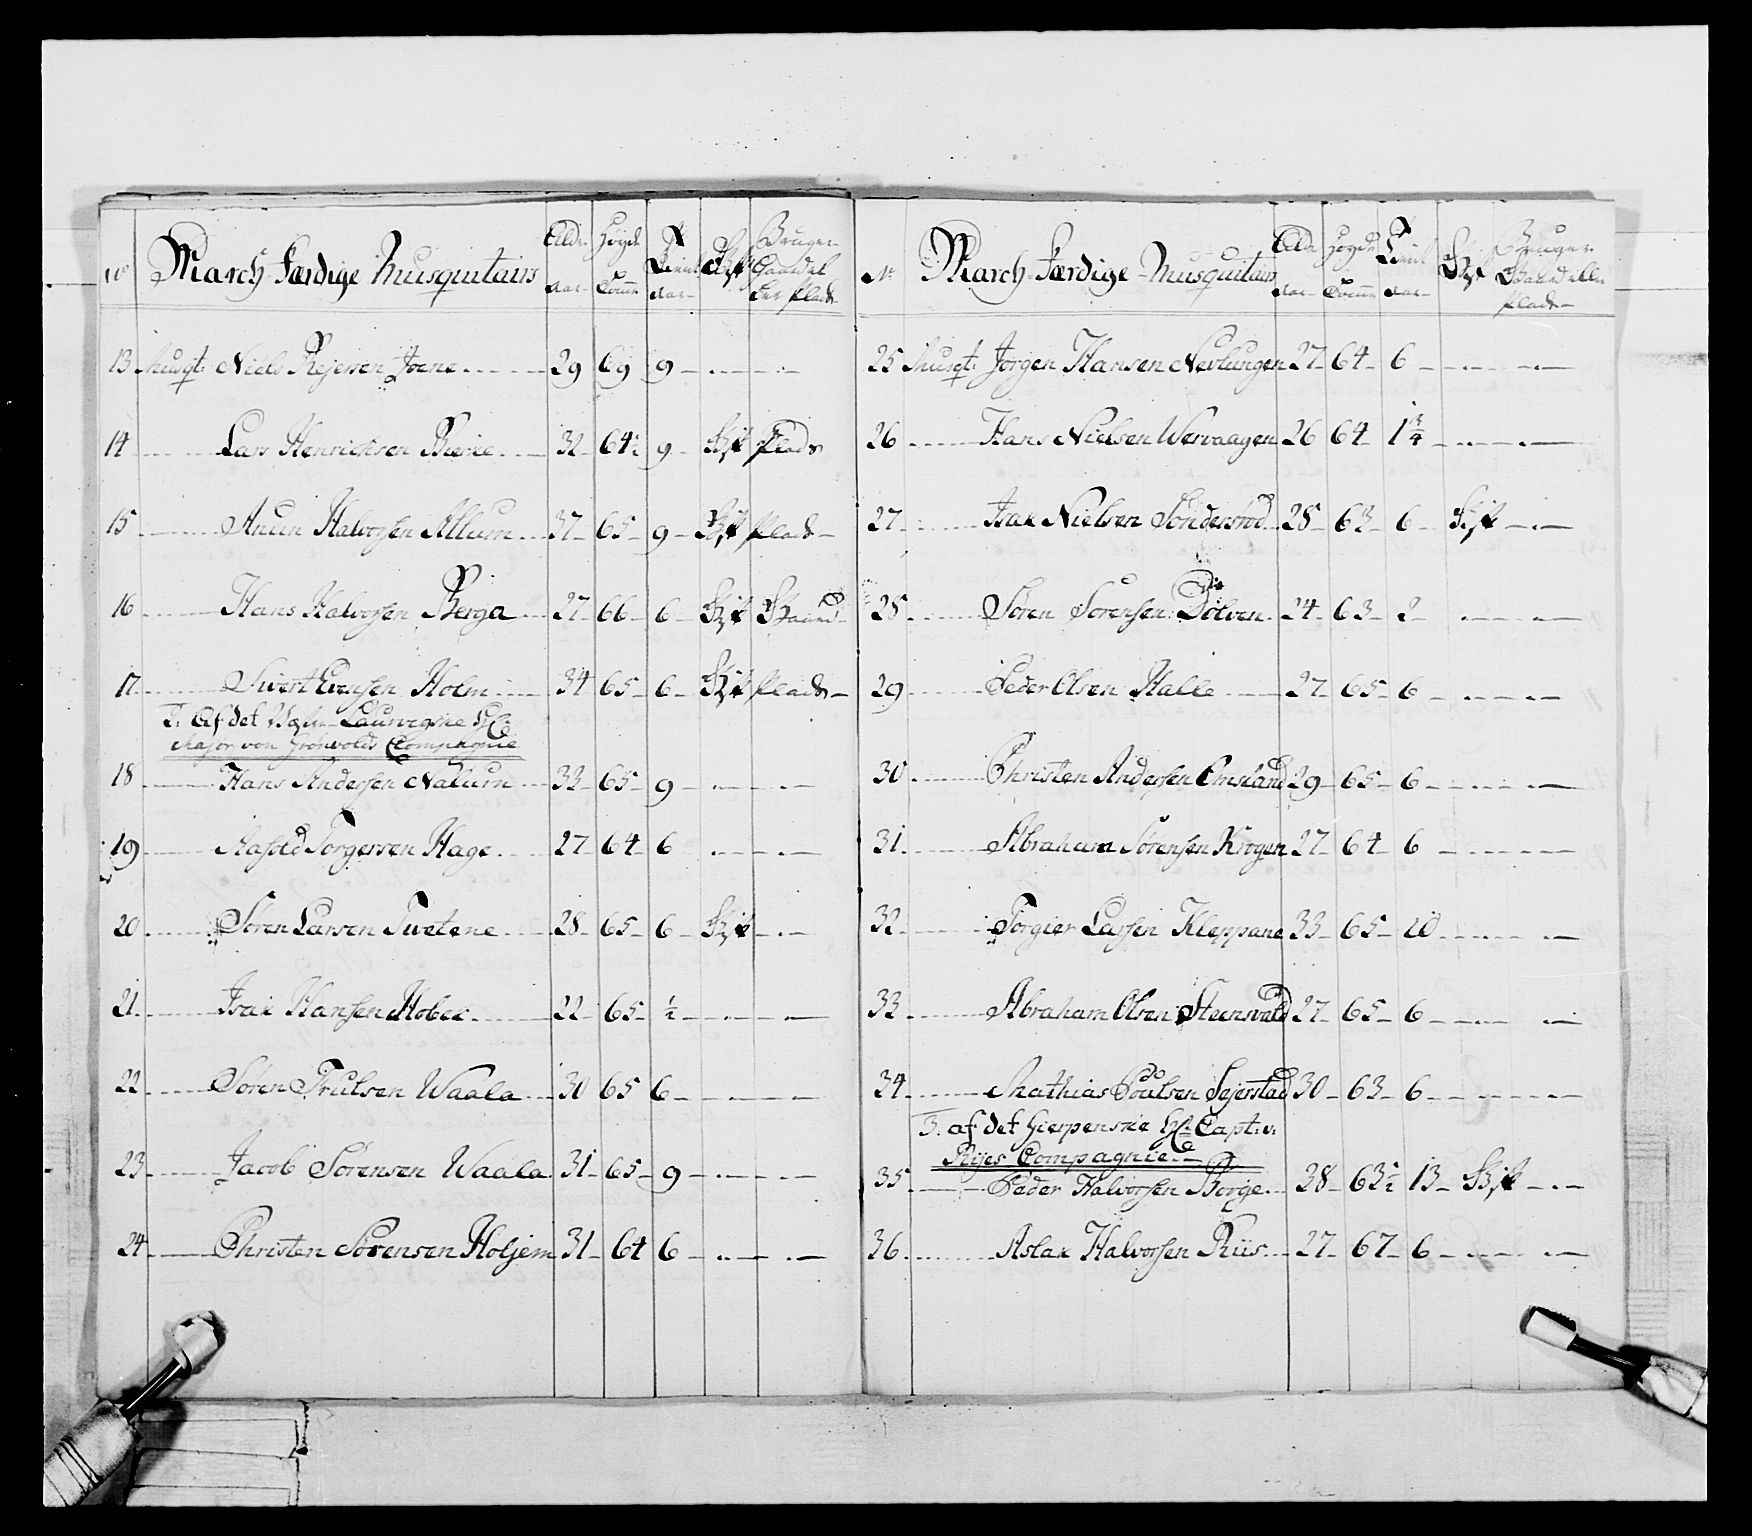 No March-Færdige Musquitairs Alder Aar Høyde Tomr Tient Aar Gift Bruger Gaard eller Plads
13 Musqt: Niels Rejersen Joene 29 69 9
14 Lars Henrichsen Bierke 32 64½ 9 Gift Plads
15 Anun Halvorsen Allum 37 65 9 Gift Plads
16 Hans Halvorsen Berga 27 66 6 Gift Gaard
17 Sivert Evensen Holm 34 65 6 Gift Plads
2. Af det Laurvigske
Major von Grønvolds Compagnie
18 Hans Andersen Nalum 33 65 9
19 Torgersen Hage 27 64 6
20 Søren Larsen Tvetene 28 65 6 Gift
21 Isak Hansen Hobek 22 65 ½
22 Søren Trulsen Waala 30 65 6
23 Jacob Sørensen Waala 31 65 9
24 Christen Sørensen Holjem 31 64 6
No March-Færdige Musquitairs Alder Aar Høyde Tomr Tient Aar Gift Bruger Gaard eller Plads
25 Musqt: Jørgen Hansen Nevlungen 27 64 6
26 Hans Nielsen Wervaagen 26 64 1¾
27 Isak Nielsen Søndersrød 28 63 6 Gift
28 Søren Sørensen Dølven 24 63 2
29 Peder Olsen Halle 27 65 6
30 Christen Andersen Omsland 29 65 6
31 Abraham Sørensen Krogen 27 64 6
32 Torgier Larsen Kleppane 33 65 10
33 Abraham Olsen Steensvold 27 65 6
34 Mathias Poulsen Sejerstad 30 63 6
3. af det Gierpenske Capt: v:
Rijes Compagnie
35 Peder Halvorsen Borge 28 63½ 13 Gift
36 Aslak Halvorsen Riis 27 67 6